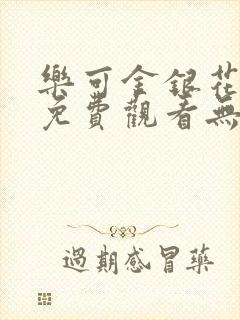 樂可金銀花
免費觀看無
過期感冒藥